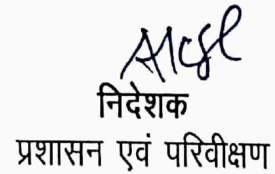 निदेशक
प्रशासन एवं परिवीक्षण